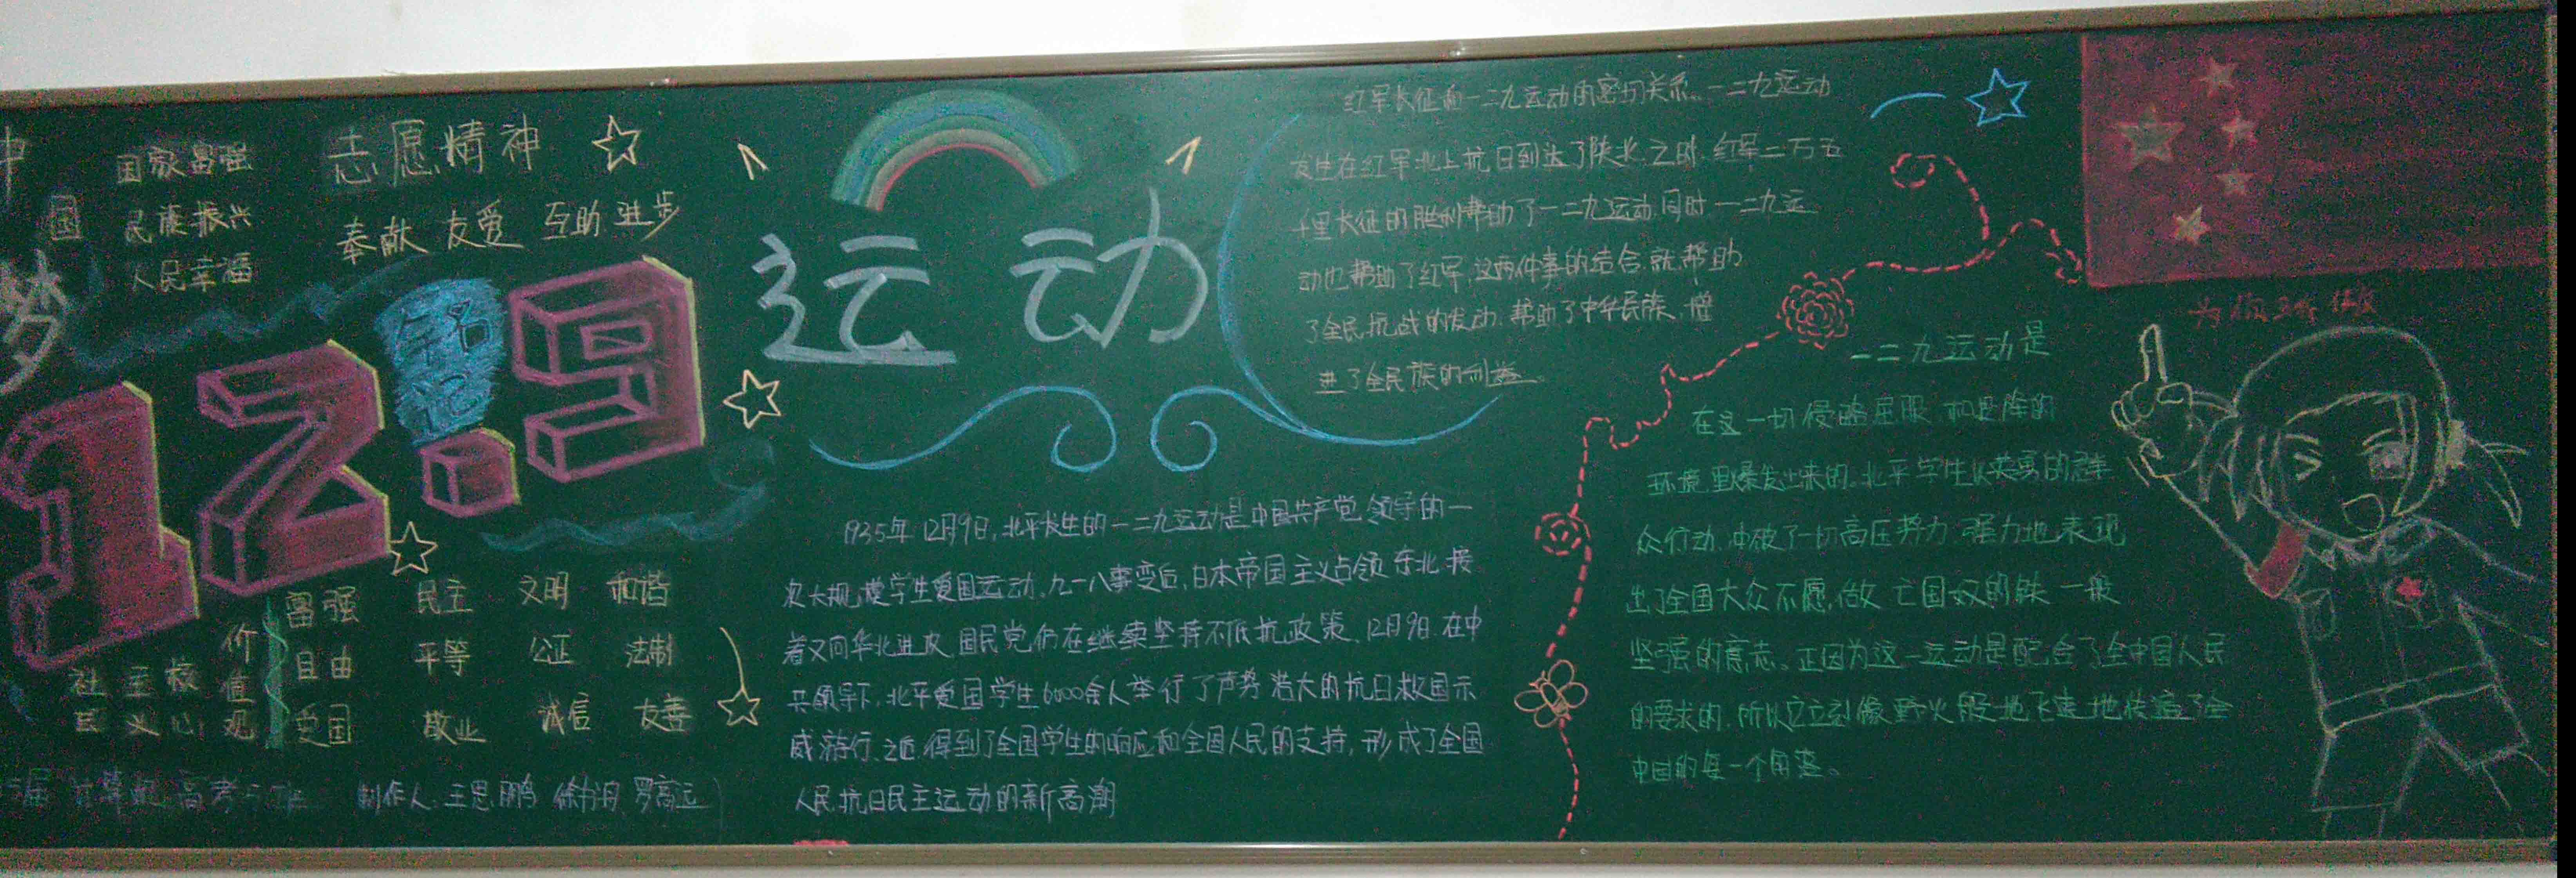 中
国
梦
国家富强
民族振兴
人民幸福
志愿精神
奉献 友爱 互助 进步
铭记
12.9
运动
社会主义核心
价值观
富强 民主 文明 和谐
自由 平等 公正 法制
爱国 敬业 诚信 友善
制作人:王思鹏 罗高远
红军长征和一二九运动的密切关系。一二九运动
发生在红军北上抗日到达了陕北之时,红军二万五
千里长征的胜利帮助了一二九运动,同时一二九运
动也帮助了红军,这两件事的结合,就帮助
了全民抗战的发动,帮助了中华民族,增
进了全民族的利益。
1935年12月9日,北平发生的一二九运动是中国共产党领导的一
次大规模学生爱国运动。九一八事变后,日本帝国主义占领东北接
着又向华北进攻,国民党仍在继续坚持不抵抗政策,12月9日,在中
共领导下,北平爱国学生6000余人举行了声势浩大的抗日救国示
威游行。之后,得到了全国学生的响应和全国人民的支持,形成了全国
人民抗日民主运动的新高潮
一二九运动是
在这一切侵略屈服和
环境里爆发出来的。北平学生以英勇的
众行动,冲破了一切高压势力,强力地表现
出了全国大众不愿做亡国奴的铁一般
坚强的意志。正因为这一运动是配合了全中国人民
的要求的,所以它立刻像野火般地飞速地传遍了全
中国的每一个角落。